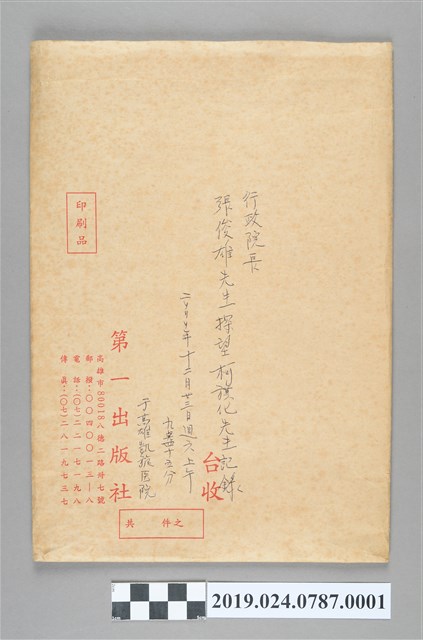 行政院長
張俊雄先生探望柯旗化先生記錄
二〇〇〇年十二月廿三日週六上午
九點四十五分
于高雄凱旋医院
台收
印刷品
第一出版社
高雄市80018八德二路卅七號
郵撥：〇〇四〇〇一三―八
電話：(〇七)二二一七一九八
傳真：(〇七)二八一九七三七
之件 共
2019.024.0787.0001